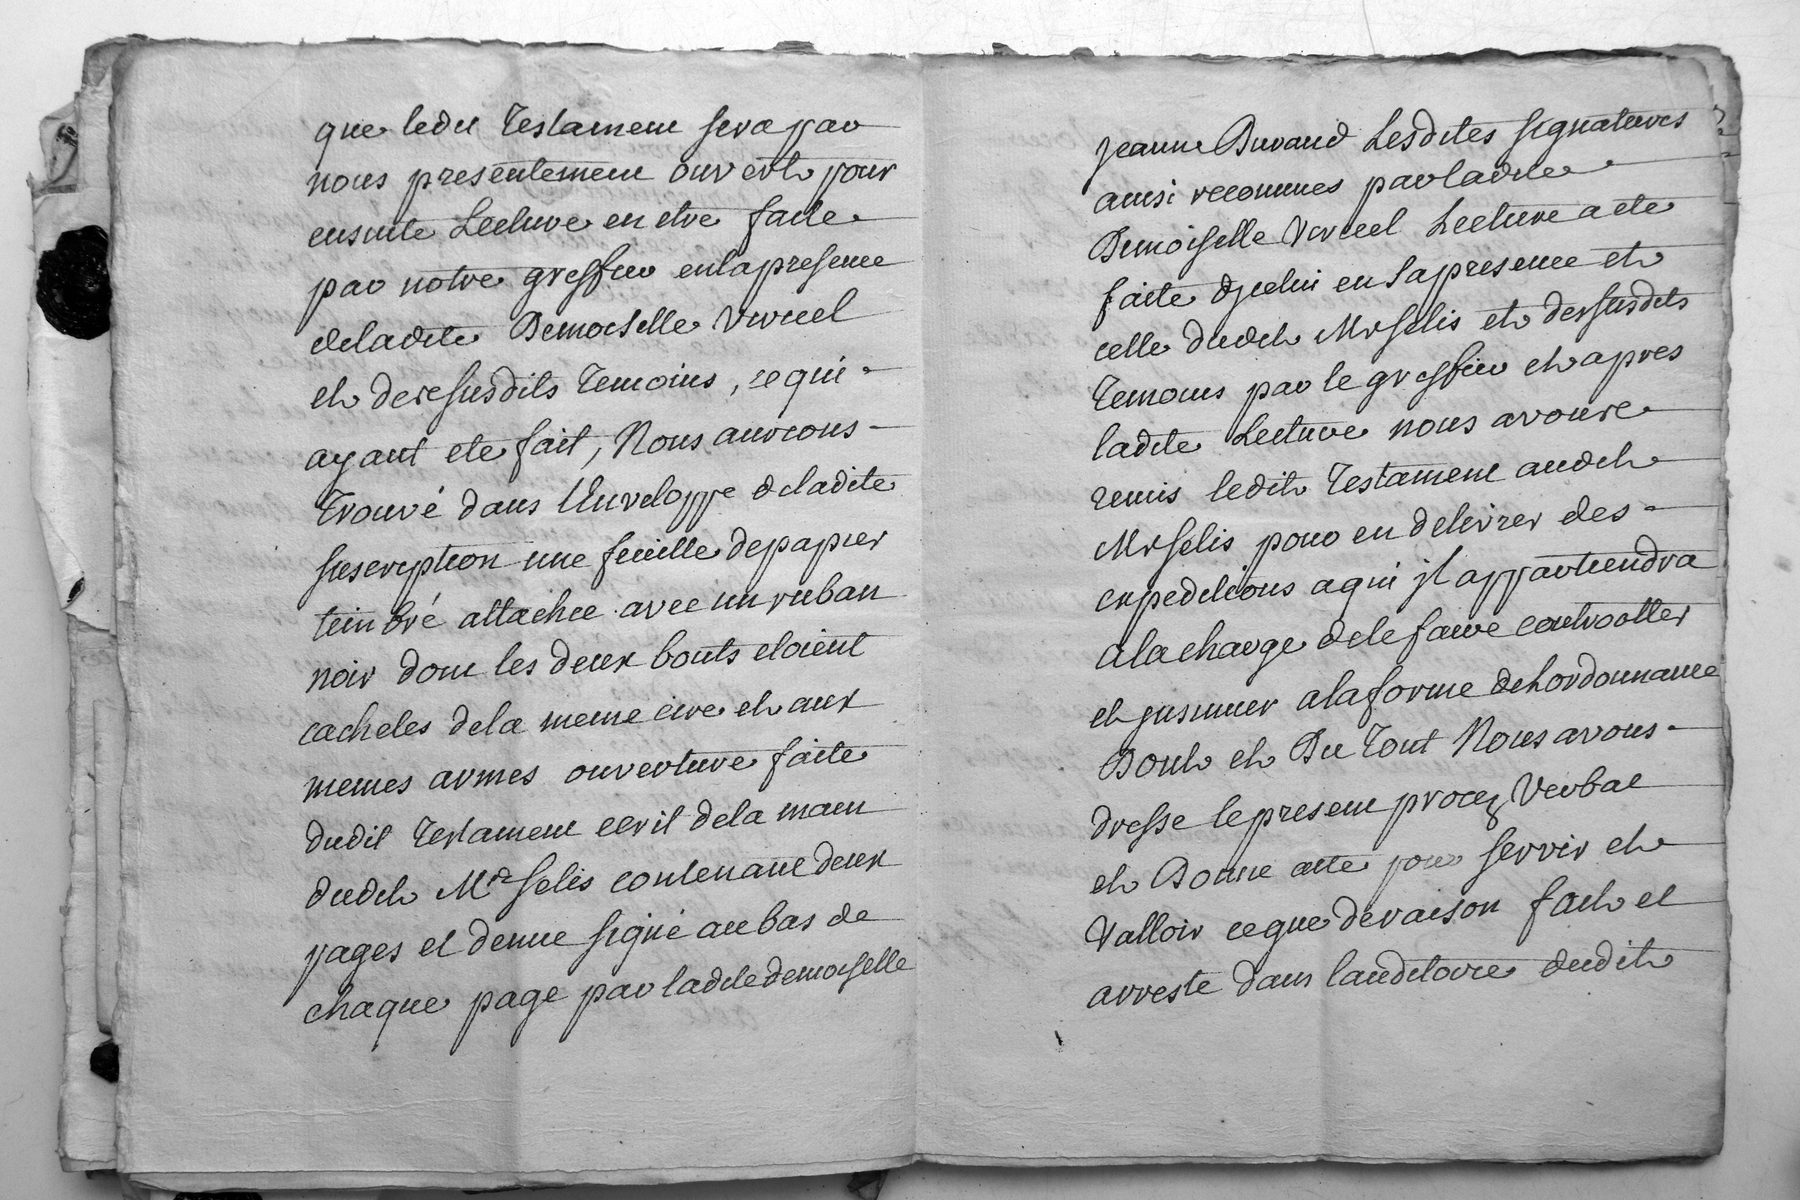 que ledit Testament sera par
nous presentement ouverth pour
ensuite Lecture en etre faite
par notre greffier enlapresence
deladite Demoiselle Vercel
eth desesusdits temoins, cequi
ayant ete fait, Nous aurions
trouvé dans lEnveloppe deladite
suscription une feuille depapier
timbré attachee avec un ruban
noir dont les deux bouts etoient
cachetes dela meme cire eth aux
memes armes ouverture faite
dudit Testament ecrit dela main
dudith Mre selis contenant deux
pages et demie signé au bas de
chaque page par ladite demoiselle
jeanne Durand Lesdites signatures
ainsi reconnues par ladite
Demoiselle Vercel Lecture a ete
faite djcelui en sa presence eth
celle dudith Mrselis eth dessusdits
temoins par le greffier eth apres
ladite Lecture nous avons re
remis ledith Testament audith
Mrselis pour en delivrer des
expeditions a qui jl appartiendra
alacharge dele faire controoller
eth jnsinuer alaforme delordonnance
Donth eth Du tout Nous avons
dresse le present procez Verbal
eth Donne acte pour servir eth
Valloir ceque deraison faith et
arreste dans lauditoire dudith